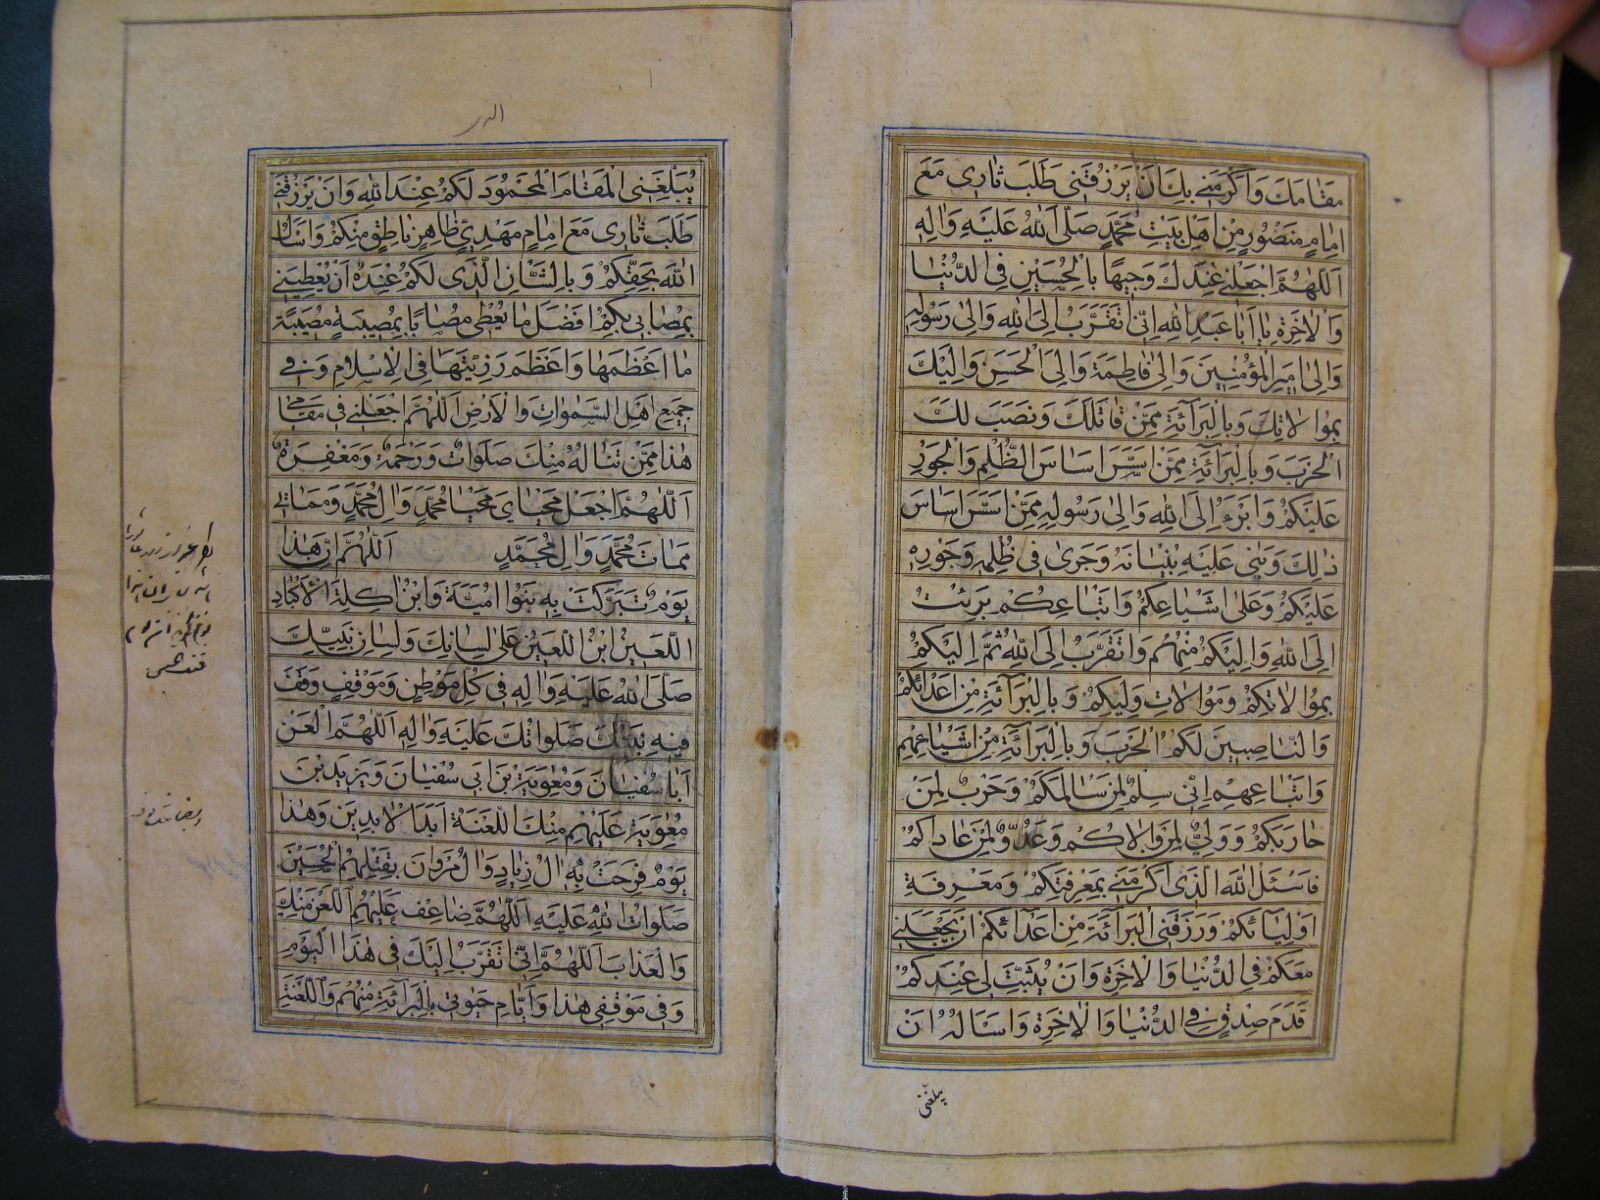 مَقامَكَ وَاَكْرَمَنى بِكَ اَنْ يَرْزُقَنى طَلَبَ ثارى مَعَ
اِمامٍ مَنْصُورٍ مِنْ اَهْلِ بَيْتِ مُحَمَّدٍ صَلَّى اللهُ عَلَيْهِ وَاٰلِهِ
اَللّٰهُمَّ اجْعَلْنى عِنْدَكَ وَجيهًا بِالْحُسَيْنِ فِى الدُّنْيا
وَالْاٰخِرَةِ يا اَبا عَبْدِ اللهِ اِنّى اَتَقَرَّبُ اِلَى اللهِ وَاِلٰى رَسُولِهِ
وَاِلٰى اَميرِ الْمُؤْمِنينَ وَاِلٰى فاطِمَةَ وَاِلَى الْحَسَنِ وَاِلَيْكَ
بِمُوالاتِكَ وَبِالْبَرآئَةِ مِمَّنْ قاتَلَكَ وَنَصَبَ لَكَ
الْحَرْبَ وَبِالْبَرآئَةِ مِمَّنْ اَسَّسَ اَساسَ الظُّلْمِ وَالْجَوْرِ
عَلَيْكُمْ وَاَبْرَءُ اِلَى اللهِ وَاِلٰى رَسُولِهِ مِمَّنْ اَسَّسَ اَساسَ
ذٰلِكَ وَبَنٰى عَلَيْهِ بُنْيانَهُ وَجَرىٰ فى ظُلْمِهِ وَجَوْرِهِ
عَلَيْكُمْ وَعَلٰى اَشْياعِكُمْ وَاَتْباعِكُمْ بَرِئْتُ
اِلَى اللهِ وَاِلَيْكُمْ مِنْهُمْ وَاَتَقَرَّبُ اِلَى اللهِ ثُمَّ اِلَيْكُمْ
بِمُوالاتِكُمْ وَمُوالاتِ وَلِيِّكُمْ وَبِالْبَرآئَةِ مِنْ اَعْدائِكُمْ
وَالنّاصِبينَ لَكُمُ الْحَرْبَ وَبِالْبَرآئَةِ مِنْ اَشْياعِهِمْ
وَاَتْباعِهِمْ اِنّى سِلْمٌ لِمَنْ سالَمَكُمْ وَحَرْبٌ لِمَنْ
حارَبَكُمْ وَوَلِىٌّ لِمَنْ والاكُمْ وَعَدُوٌّ لِمَنْ عاداكُمْ
فَاَسْئَلُ اللهَ الَّذى اَكْرَمَنى بِمَعْرِفَتِكُمْ وَمَعْرِفَةِ
اَوْلِيآئِكُمْ وَرَزَقَنِى الْبَرآئَةَ مِنْ اَعْدائِكُمْ اَنْ يَجْعَلَنى
مَعَكُمْ فِى الدُّنْيا وَالْاٰخِرَةِ وَاَنْ يُثَبِّتَ لى عِنْدَكُمْ
قَدَمَ صِدْقٍ فِى الدُّنْيا وَالْاٰخِرَةِ وَاَسْاَلُهُ اَنْ
يبلغنى
يُبَلِّغَنِى الْمَقامَ الْمَحْمُودَ لَكُمْ عِنْدَ اللهِ وَاَنْ يَرْزُقَنى
طَلَبَ ثارى مَعَ اِمامٍ مَهْدِىٍّ ظاهِرٍ ناطِقٍ مِنْكُمْ وَاَسْاَلُ
اللهَ بِحَقِّكُمْ وَبِالشَّاْنِ الَّذى لَكُمْ عِنْدَهُ اَنْ يُعْطِيَنى
بِمُصابى بِكُمْ اَفْضَلَ ما يُعْطى مُصابًا بِمُصيبَةٍ مُصيبَةً
ما اَعْظَمَها وَاَعْظَمَ رَزِيَّتَها فِى الْاِسْلامِ وَفى
جَميعِ اَهْلِ السَّمٰواتِ وَالْاَرْضِ اَللّٰهُمَّ اجْعَلْنى فى مَقامى
هٰذا مِمَّنْ تَنالُهُ مِنْكَ صَلَواتٌ وَرَحْمَةٌ وَمَغْفِرَةٌ
اَللّٰهُمَّ اجْعَلْ مَحْياىَ مَحْيا مُحَمَّدٍ وَاٰلِ مُحَمَّدٍ وَمَماتى
مَماتَ مُحَمَّدٍ وَاٰلِ مُحَمَّدٍ اَللّٰهُمَّ اِنَّ هٰذا
يَوْمٌ تَبَرَّكَتْ بِهِ بَنُوا اُمَيَّةَ وَابْنُ اٰكِلَةِ الْاَكْبادِ
اللَّعينُ ابْنُ اللَّعينِ عَلٰى لِسانِكَ وَلِسانِ نَبِيِّكَ
صَلَّى اللهُ عَلَيْهِ وَاٰلِهِ فى كُلِّ مَوْطِنٍ وَمَوْقِفٍ وَقَفَ
فيهِ نَبِيُّكَ صَلَواتُكَ عَلَيْهِ وَاٰلِهِ اَللّٰهُمَّ الْعَنْ
اَبا سُفْيانَ وَمُعٰوِيَةَ بْنَ اَبى سُفْيانَ وَيَزيدَ بْنَ
مُعٰوِيَةَ عَلَيْهِمْ مِنْكَ اللَّعْنَةُ اَبَدَ الْاٰبِدينَ وَهٰذا
يَوْمٌ فَرِحَتْ بِهِ اٰلُ زِيادٍ وَاٰلُ مَرْوانَ بِقَتْلِهِمُ الْحُسَيْنَ
صَلَواتُ اللهِ عَلَيْهِ اَللّٰهُمَّ ضاعِفْ عَلَيْهِمُ اللَّعْنَ مِنْكَ
وَالْعَذابَ اَللّٰهُمَّ اِنّى اَتَقَرَّبُ اِلَيْكَ فى هٰذَا الْيَوْمِ
وَفى مَوْقِفى هٰذا وَاَيّامِ حَيٰوتى بِالْبَرآئَةِ مِنْهُمْ وَاللَّعْنَةِ